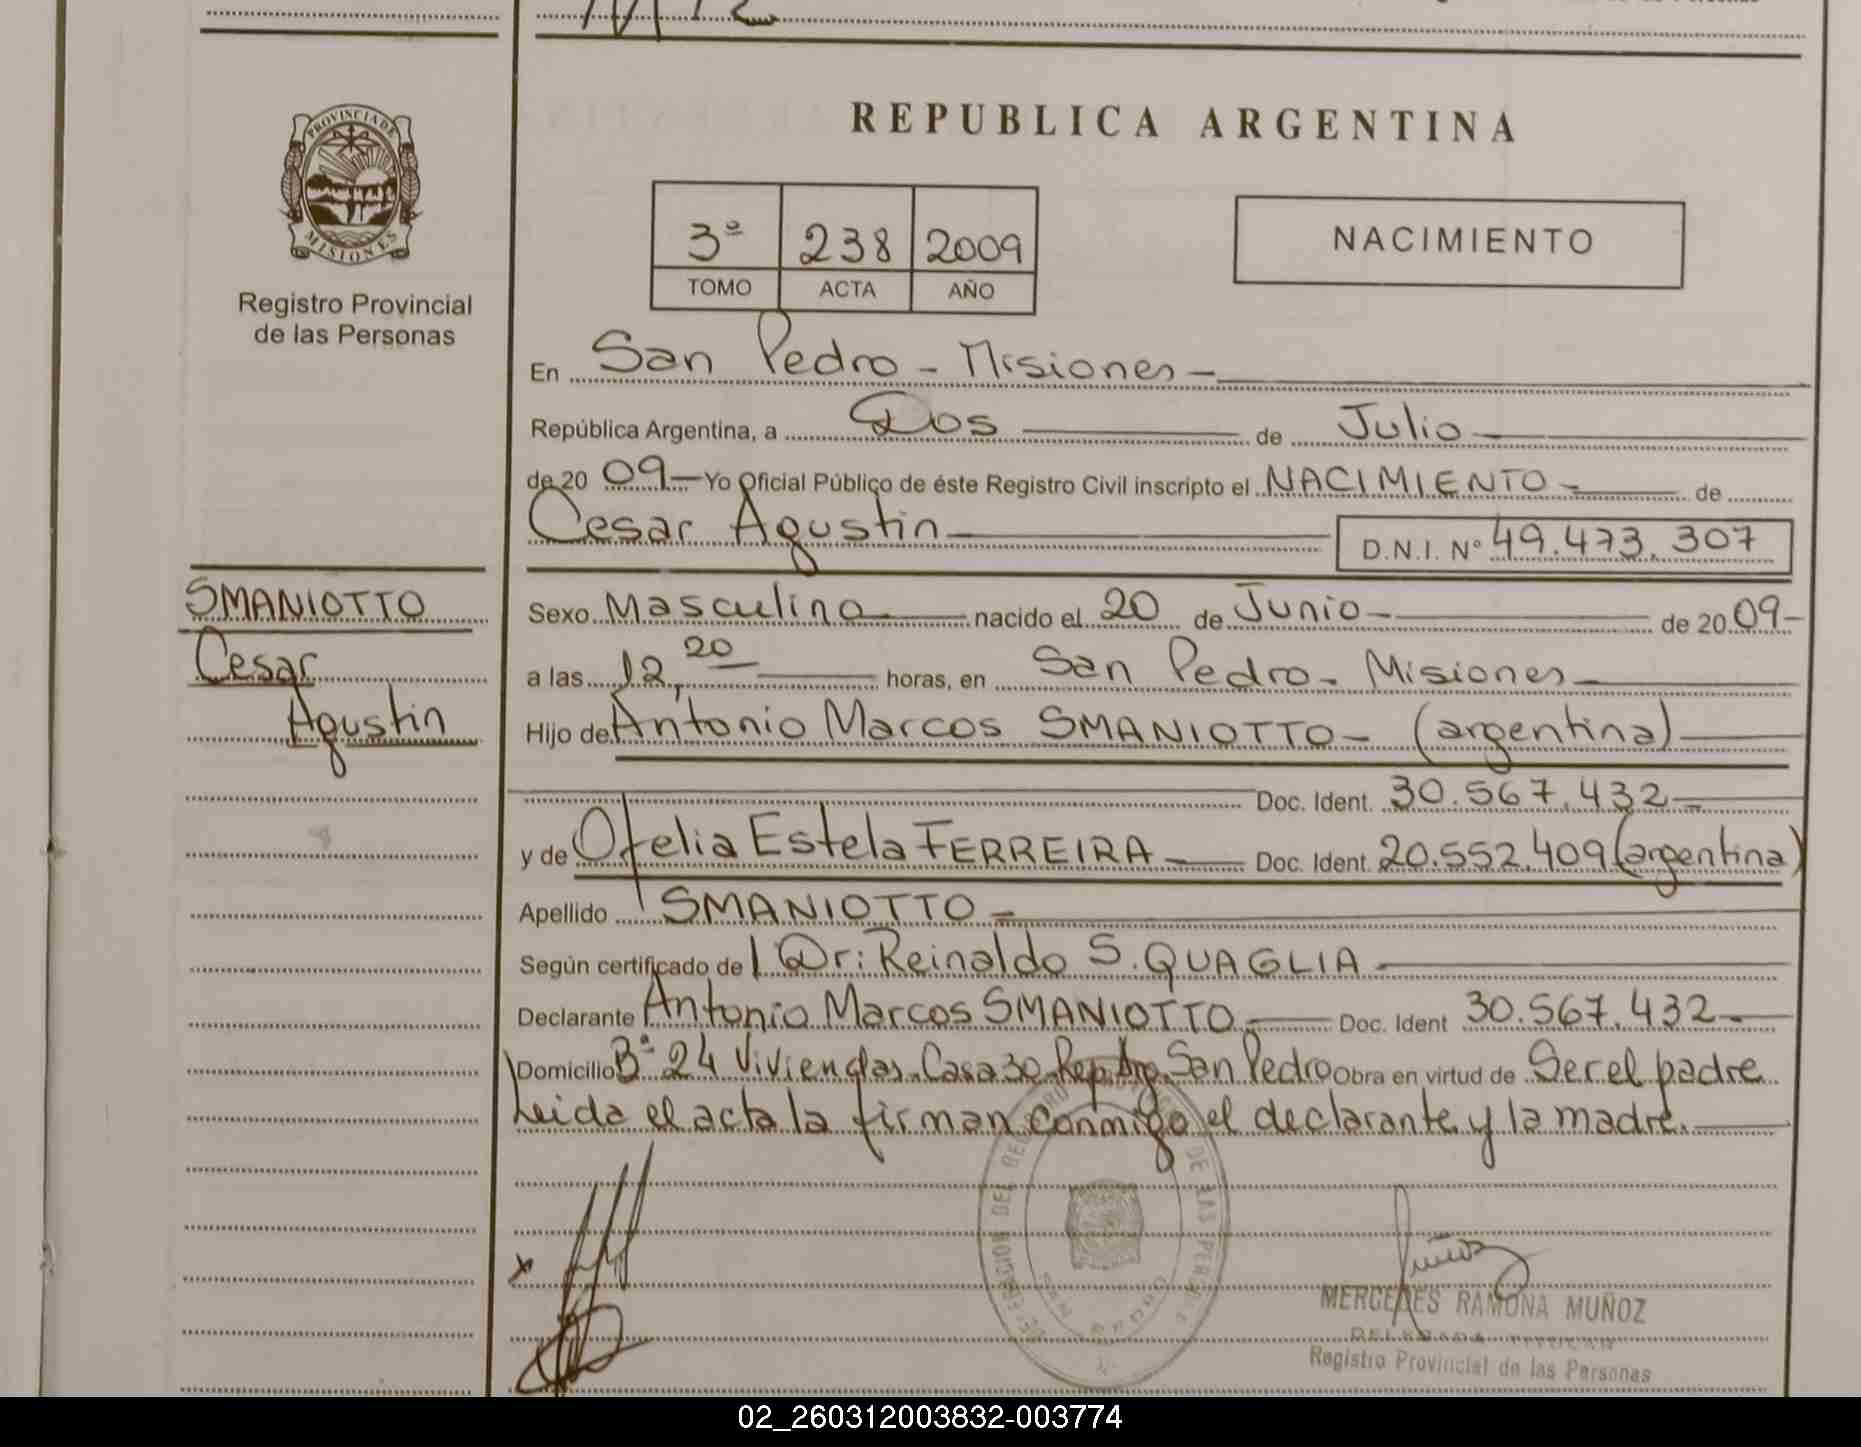 REPUBLICA ARGENTINA
PROVINCIA DE
MISIONES
Registro Provincial
de las Personas
3º 238 2009
TOMO ACTA AÑO
NACIMIENTO
En San Pedro - Misiones -
República Argentina, a Dos de Julio
de 20 09 - Yo Oficial Público de éste Registro Civil inscripto el NACIMIENTO - de
Cesar Agustin D.N.I. Nº 49.473.307
SMANIOTTO
Cesar
Agustin
Sexo Masculino nacido el 20 de Junio - de 20 09 -
a las 12,20 horas, en San Pedro - Misiones -
Hijo de Antonio Marcos SMANIOTTO - (argentina)
Doc. Ident. 30.567.432 -
y de Ofelia Estela FERREIRA - Doc. Ident. 20.552.409 (argentina)
Apellido SMANIOTTO -
Según certificado de Dr: Reinaldo S. QUAGLIA -
Declarante Antonio Marcos SMANIOTTO - Doc. Ident 30.567.432 -
Domicilio Bº 24 Viviendas. Casa 30 Rep. Arg. San Pedro Obra en virtud de Ser el padre
Leida el acta la firman conmigo el declarante y la madre.
MERCEDES RAMONA MUÑOZ
DELEGADA TITULAR
Registro Provincial de las Personas
02_260312003832-003774